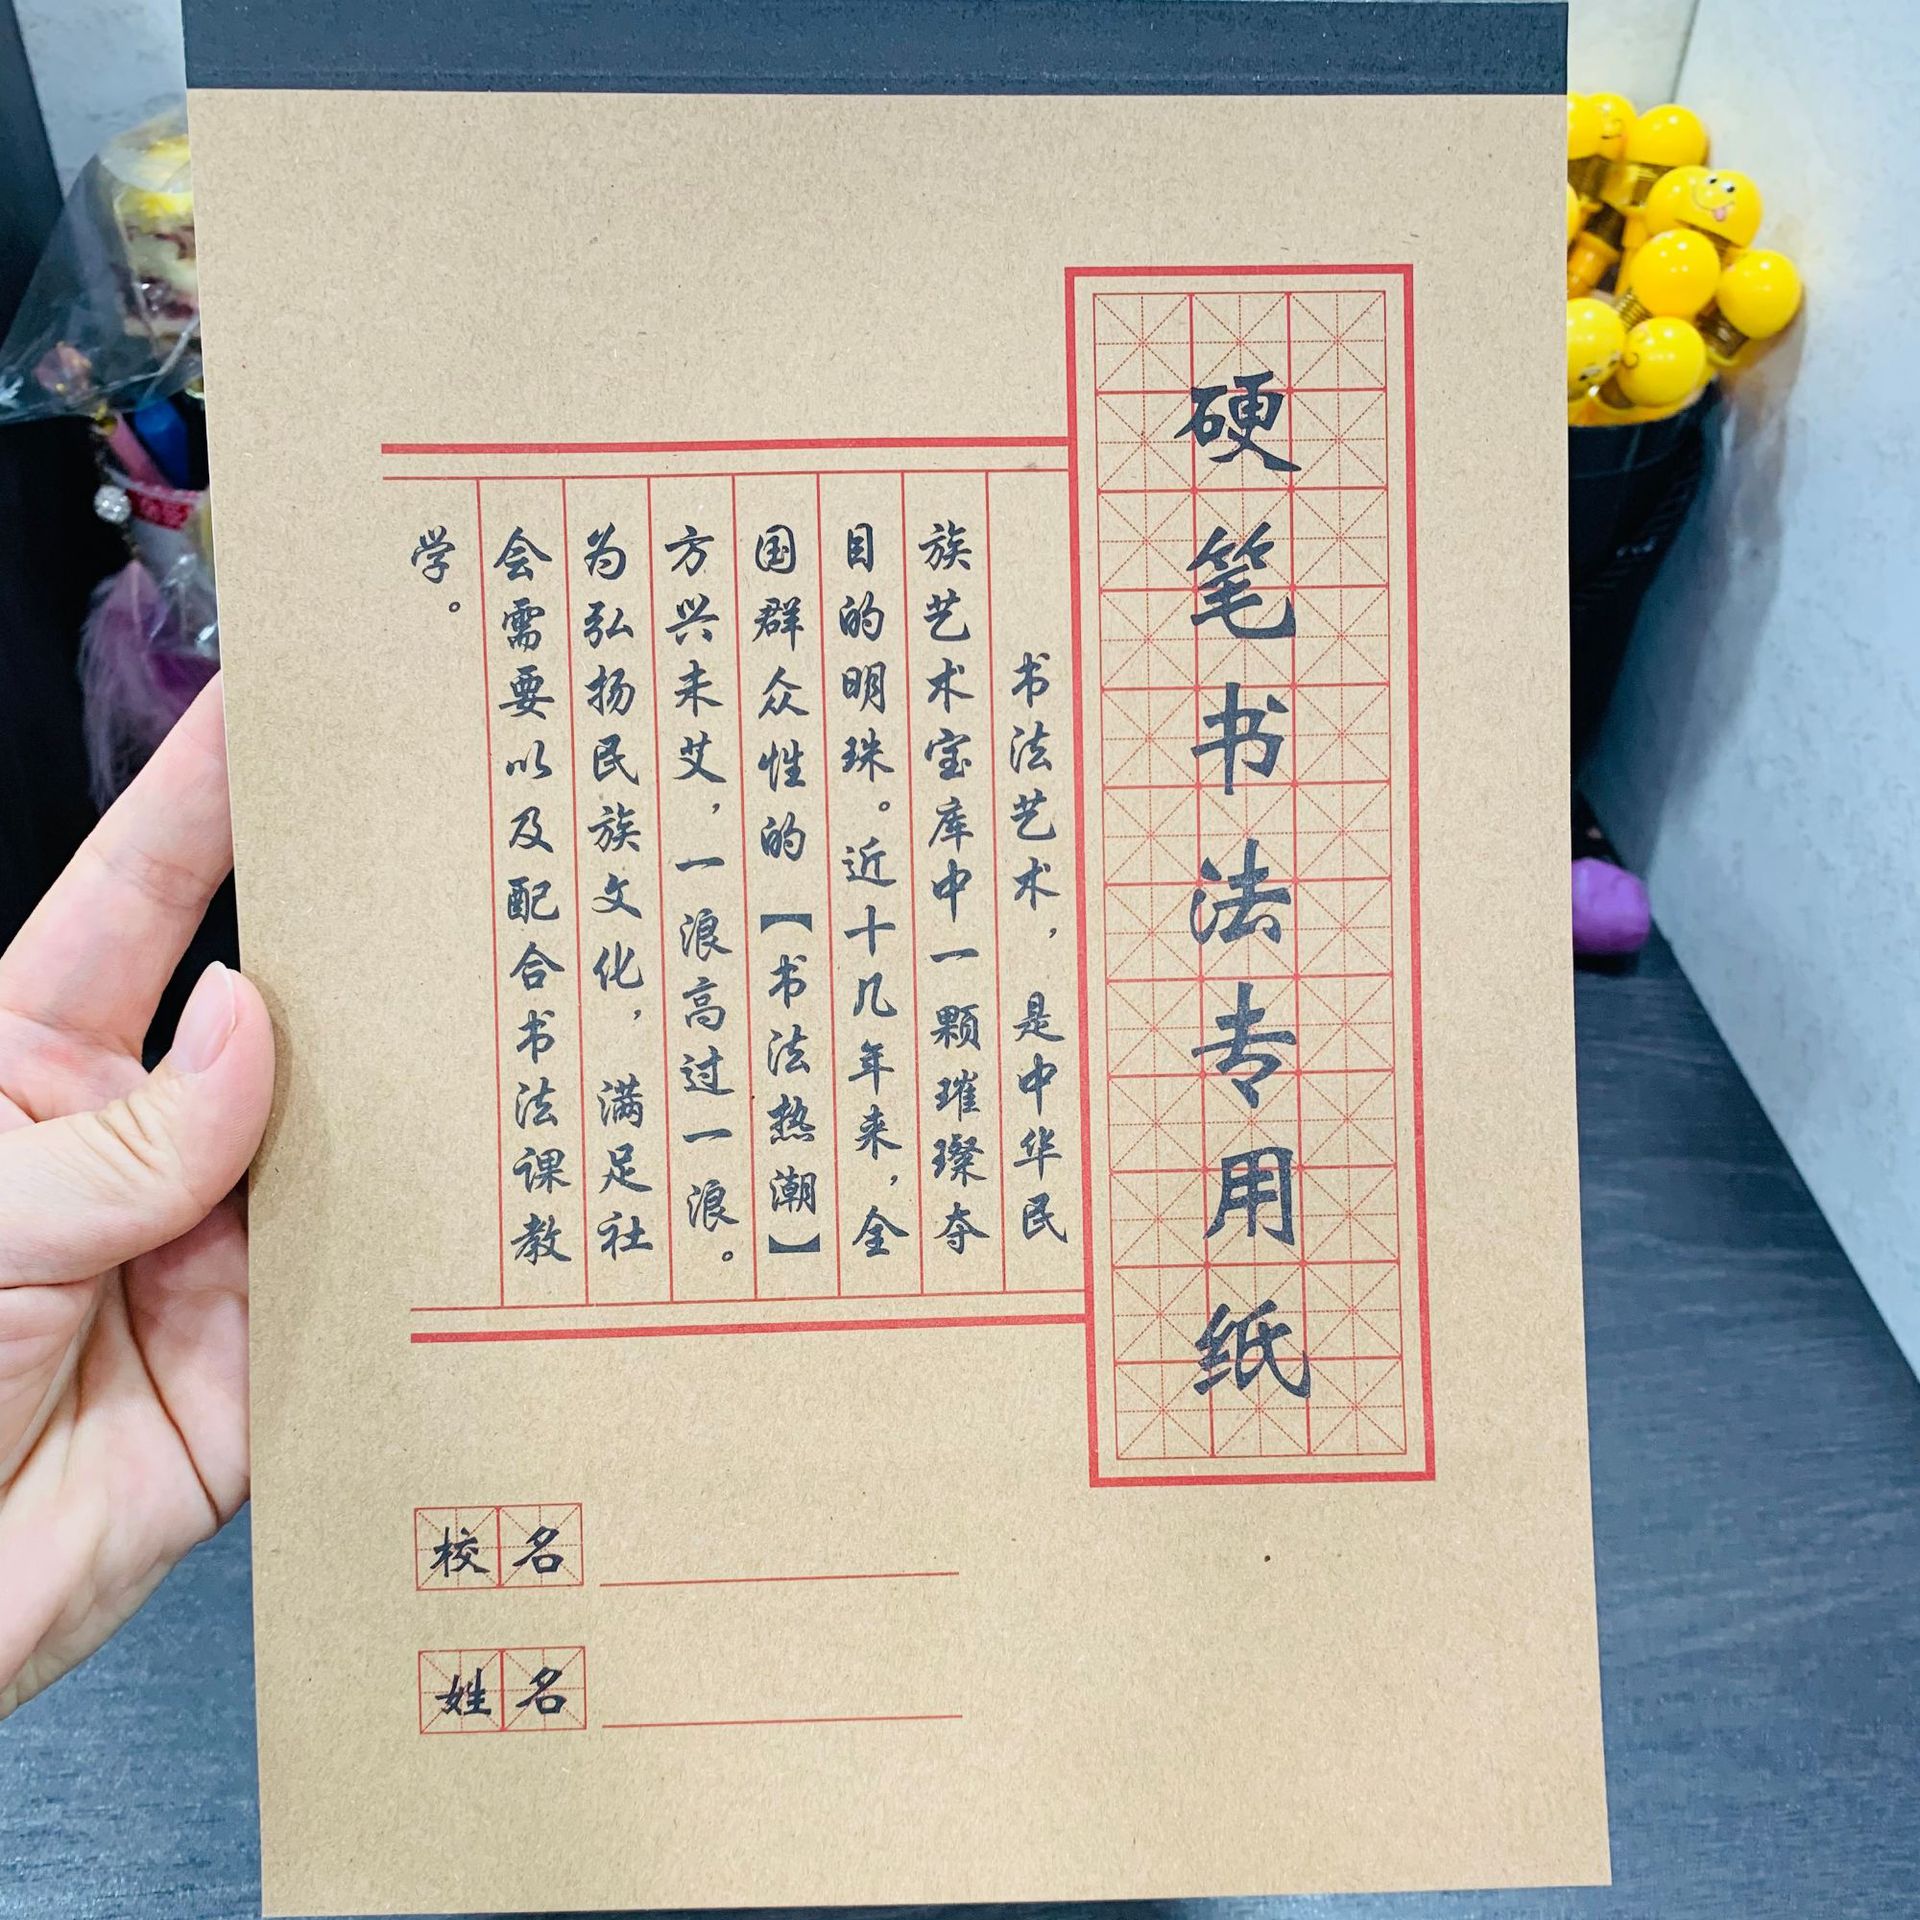 硬笔书法专用纸
书法艺术，是中华民
族艺术宝库中一颗璀璨夺
目的明珠。近十几年来，全
国群众性的【书法热潮】
方兴未艾，一浪高过一浪。
为弘扬民族文化，满足社
会需要以及配合书法课教
学。
校名
姓名